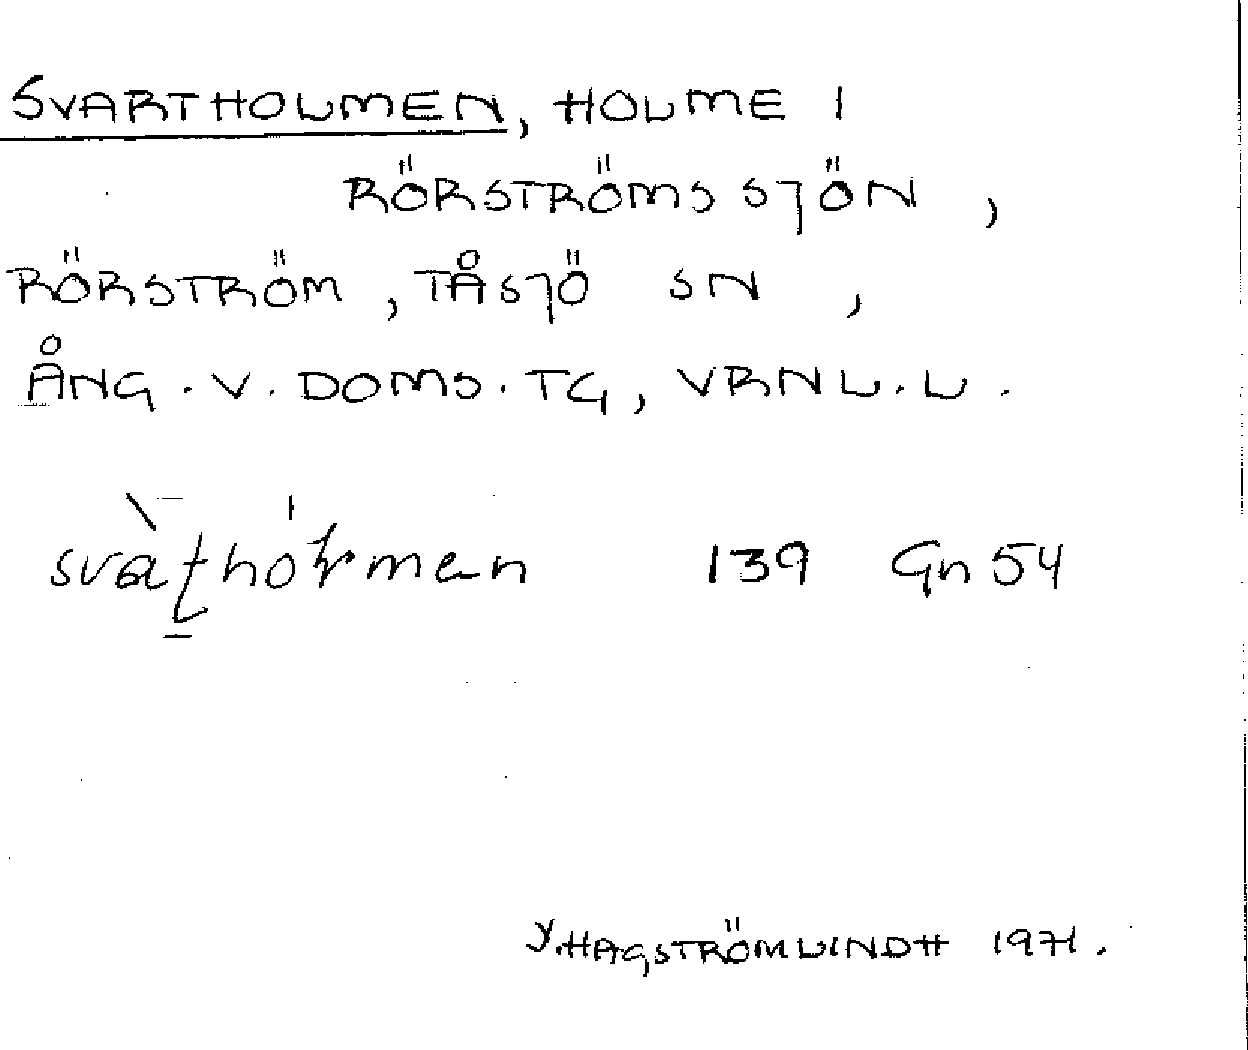 SVARTHOLMEN, HOLME I
RÖRSTRÖMSSJÖN,
RÖRSTRÖM, TÅSJÖ SN,
ÅNG. V. DOMS. TG, VRNL. L.
139 Gn 54
Y. HAGSTRÖM LINDH 1971.